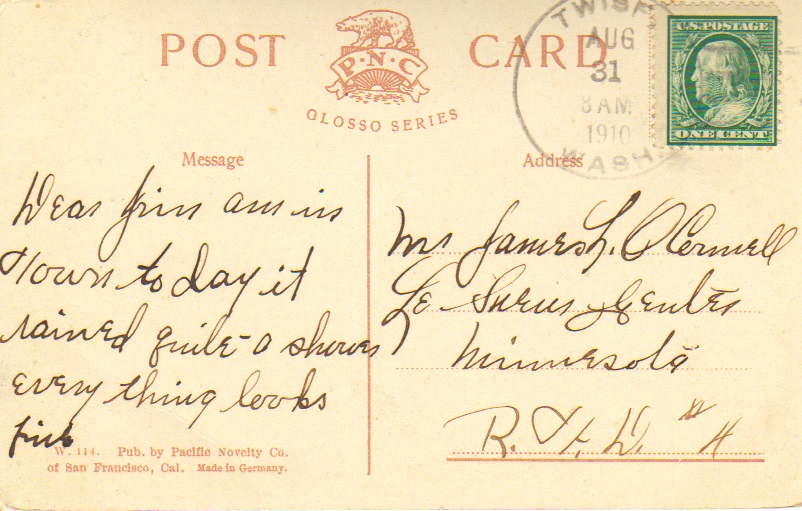 POST CARD
P·N·C
GLOSSO SERIES
TWISP
AUG
31
8 AM
1910
WASH.
U.S. POSTAGE
ONE CENT
Message
Address
Dear Jim am in
Town to day it
rained quite a shower
every thing looks
fine
Mr James L. O'Connell
Le Sueur Center
Minnesota
R. F. D. # 4
W. 114. Pub. by Pacific Novelty Co.
of San Francisco, Cal. Made in Germany.